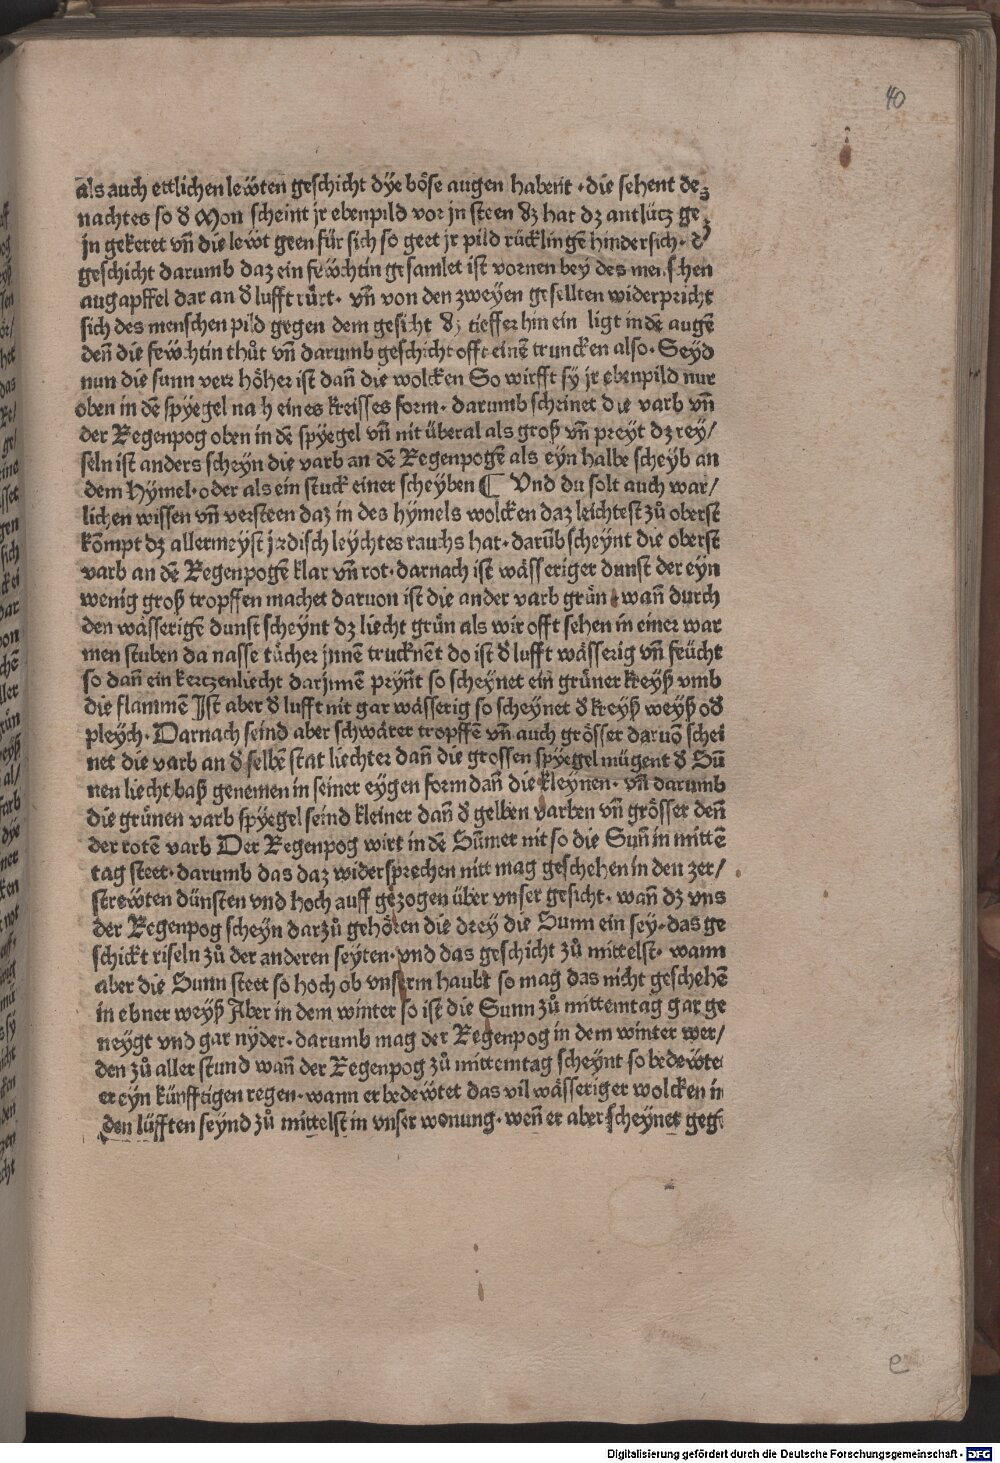 40
als auch ettlichen lewten geschicht dÿe böse augen habent · die sehent dez
nachtes so d̕ Mon scheint jr ebenpild vor jn steen dz hat dz antlücz ge
jn gekeret vñ die lewt geen für sich so geet jr pild rücklingē hindersich · d̕
geschicht darumb daz ein fewchtin gesamlet ist vornen bey des menschen
augapffel dar an d̕ lufft rürt · vñ von den zweyen gesellten widerpricht
sich des menschen pild gegen dem gesicht dz tieffer hin ein ligt in dē augē
deñ die fewchtin thůt vñ darumb geschicht offt einē truncken also · Seyd
nun die sunn verr höher ist dañ die wolcken So wirfft sÿ jr ebenpild nur
oben in dē spÿegel nach eines kreisses form · darumb scheinet die varb vñ
der Regenpog oben in dē spÿegel vñ nit überal als groß vñ preyt dz rey/
seln ist anders scheyn die varb an dē Regenpogē als eyn halbe scheyb an
dem Hÿmel · oder als ein stuck einer scheyben ¶ Vnd du solt auch war/
lichen wissen vñ versteen daz in des hÿmels wolcken daz leichtest zů oberst
kōmpt dz allermeÿst jrdisch leychtes rauchs hat · darūb scheynt die oberst
varb an dē Regenpogē klar vñ rot · darnach ist wässeriger dunst der eyn
wenig groß tropffen machet daruon ist die ander varb grün · wañ durch
den wässerigē dunst scheynt dz liecht grün als wir offt sehen in einer war
men stuben da nasse tücher jnnē trucknēt do ist d̕ lufft wässerig vñ feücht
so dañ ein kertzenliecht darjnnē prÿnt so scheynet ein grüner kreyß vmb
die flammē Ist aber d̕ lufft nit gar wässerig so scheynet d̕ kreyß weyß od̕
pleych · Darnach seind aber schwärer tropffē vñ auch grösser daruō schei
net die varb an d̕ selbē stat liechter dañ die grossen spÿegel mügent d̕ Sū
nen liecht baß genemen in seiner eygen form dañ die kleynen · vñ darumb
die grünen varb spÿegel seind kleiner dañ d̕ gelben varben vñ grösser deñ
der rotē varb Der Regenpog wirt in dē Sūmer nit so die Suñ in mittē
tag steet · darumb das daz widersprechen nitt mag geschehen in den zer/
strewten dünsten vnd hoch auff gezogen über vnser gesicht · wañ dz vns
der Regenpog scheyn darzů gehören die drey die Sunn ein sey · das ge
schickt riseln zů der anderen seyten · vnd das gesicht zů mittelst · wann
aber die Sunn steet so hoch ob vnserm haubt so mag das nicht geschehē
in ebner weyß Aber in dem winter so ist die Sunn zů mittemtag gar ge
neygt vnd gar nÿder · darumb mag der Regenpog in dem winter wer/
den zů aller stund wañ der Regenpog zů mittemtag scheynt so bedewtet
er eyn künfftigen regen · wann er bedewtet das vil wässeriger wolcken in
den lüfften seynd zů mittelst in vnser wonung · weñ er aber scheynet gegē
e
Digitalisierung gefördert durch die Deutsche Forschungsgemeinschaft - DFG